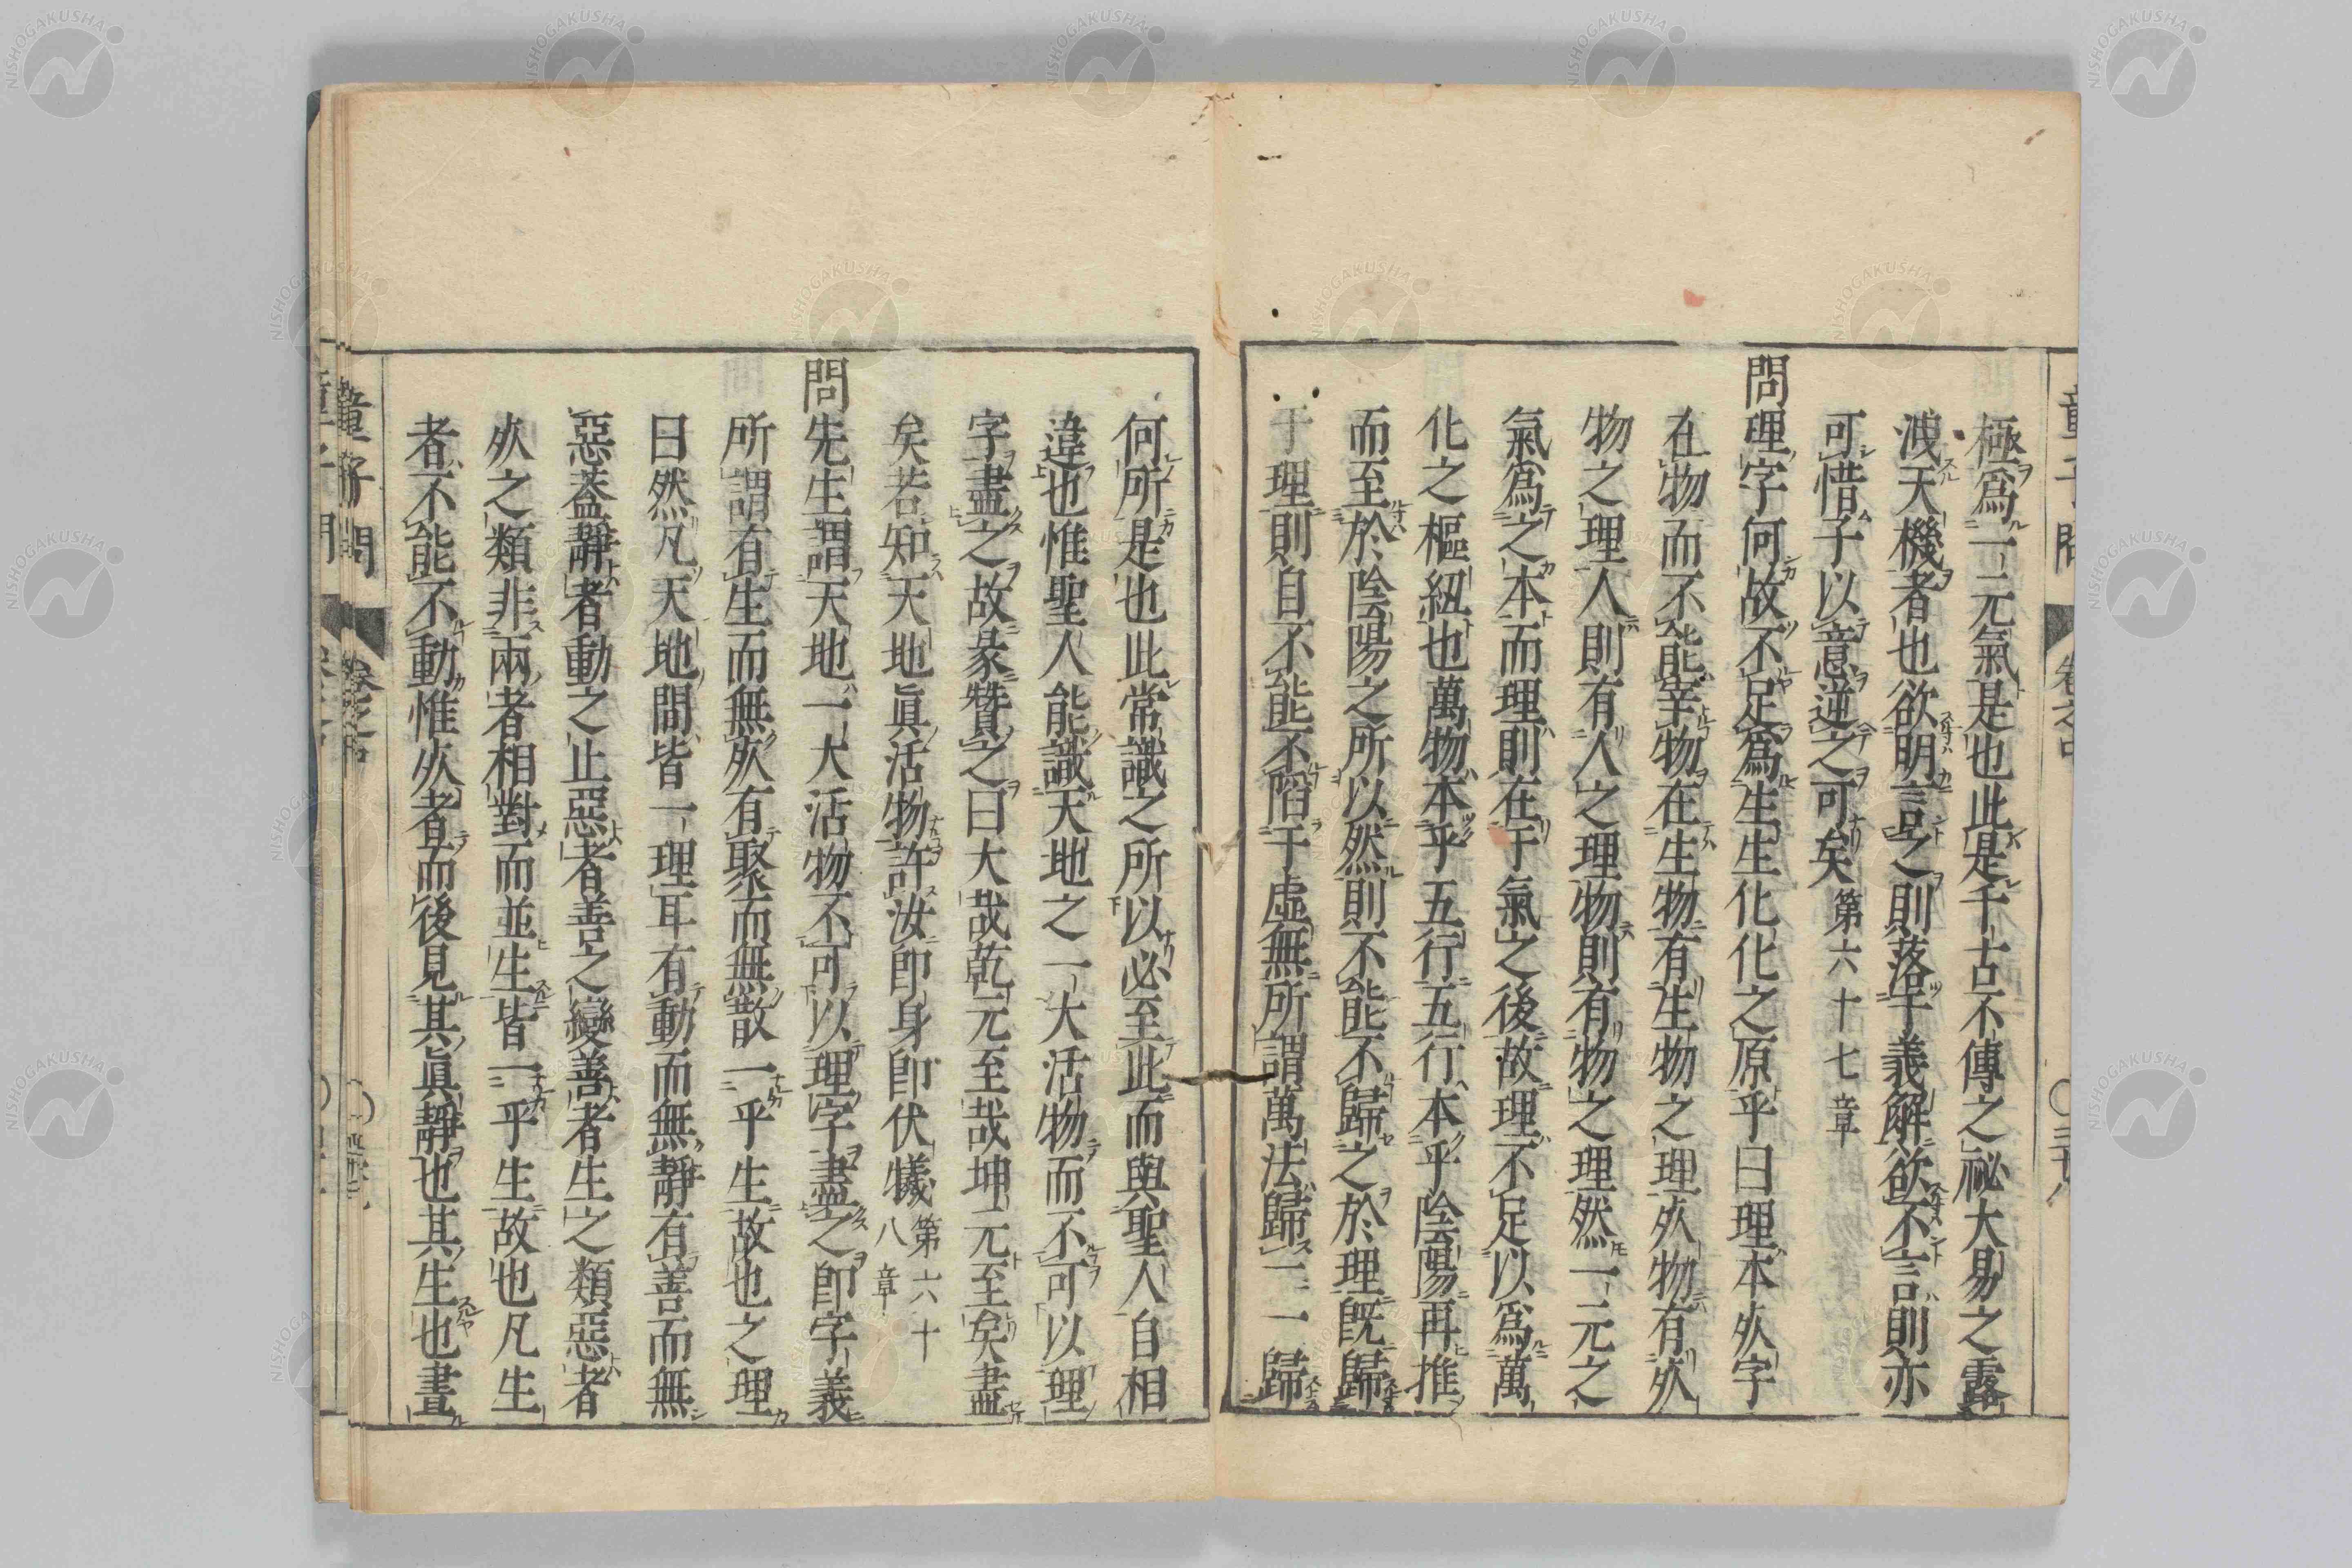 極爲一元氣是也此是千古不傳之祕大易之露
洩天機者也欲明言之則落于義解欲不言則亦
可惜子以意逆之可矣 第六十七章
問理字何故不足爲生生化化之原乎曰理本死字
在物而不能宰物在生物有生物之理死物有死
物之理人則有人之理物則有物之理然一元之
氣爲之本而理則在于氣之後故理不足以爲萬
化之樞紐也萬物本乎五行五行本乎陰陽再推
而至於陰陽之所以然則不能不歸之於理既歸
于理則自不能不陷于虛無所謂萬法歸一一歸
何所是也此常識之所以必至此而與聖人自相
違也惟聖人能識天地之一大活物而不可以理
字盡之故彖贊之曰大哉乾元至哉坤元至矣盡
矣若知天地眞活物許汝卽身卽伏犧 第六十八章
問先生謂天地一大活物不可以理字盡之卽字義
所謂有生而無死有聚而無散一乎生故也之理
曰然凡天地間皆一理耳有動而無靜有善而無
惡蓋靜者動之止惡者善之變善者生之類惡者
死之類非兩者相對而並生皆一乎生故也凡生
者不能不動惟死者而後見其眞靜也其生也晝
童子問
卷之中
童子問
卷之中
NISHOGAKUSHA